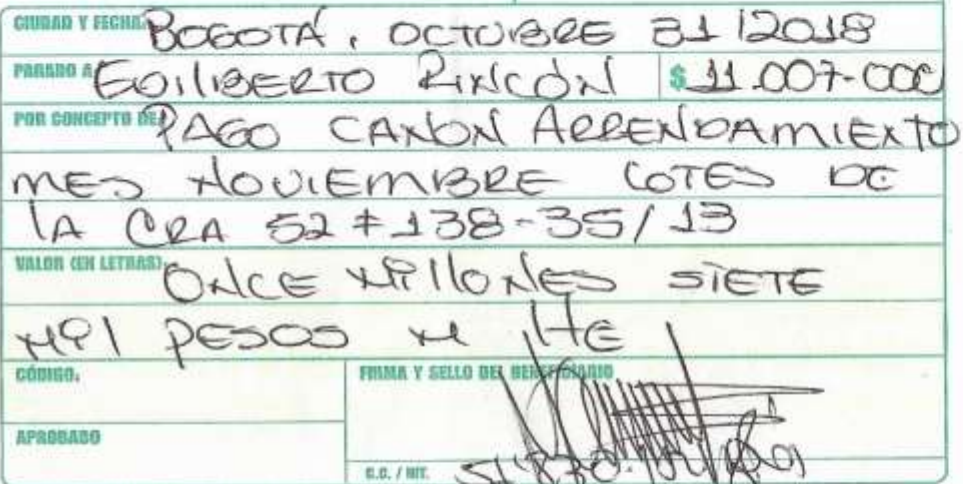 CIUDAD Y FECHA: BOGOTÁ, OCTUBRE 31/2018
PAGADO A: EDILBERTO RINCÓN $ 11.007-000
POR CONCEPTO DE: PAGO CANON ARRENDAMIENTO
MES NOVIEMBRE LOTES DE
LA CRA 52 # 138-35/13
VALOR (EN LETRAS): ONCE MILLONES SIETE
MIL PESOS M/TE
CÓDIGO.
FIRMA Y SELLO DEL BENEFICIARIO
APROBADO
C.C. / NIT.